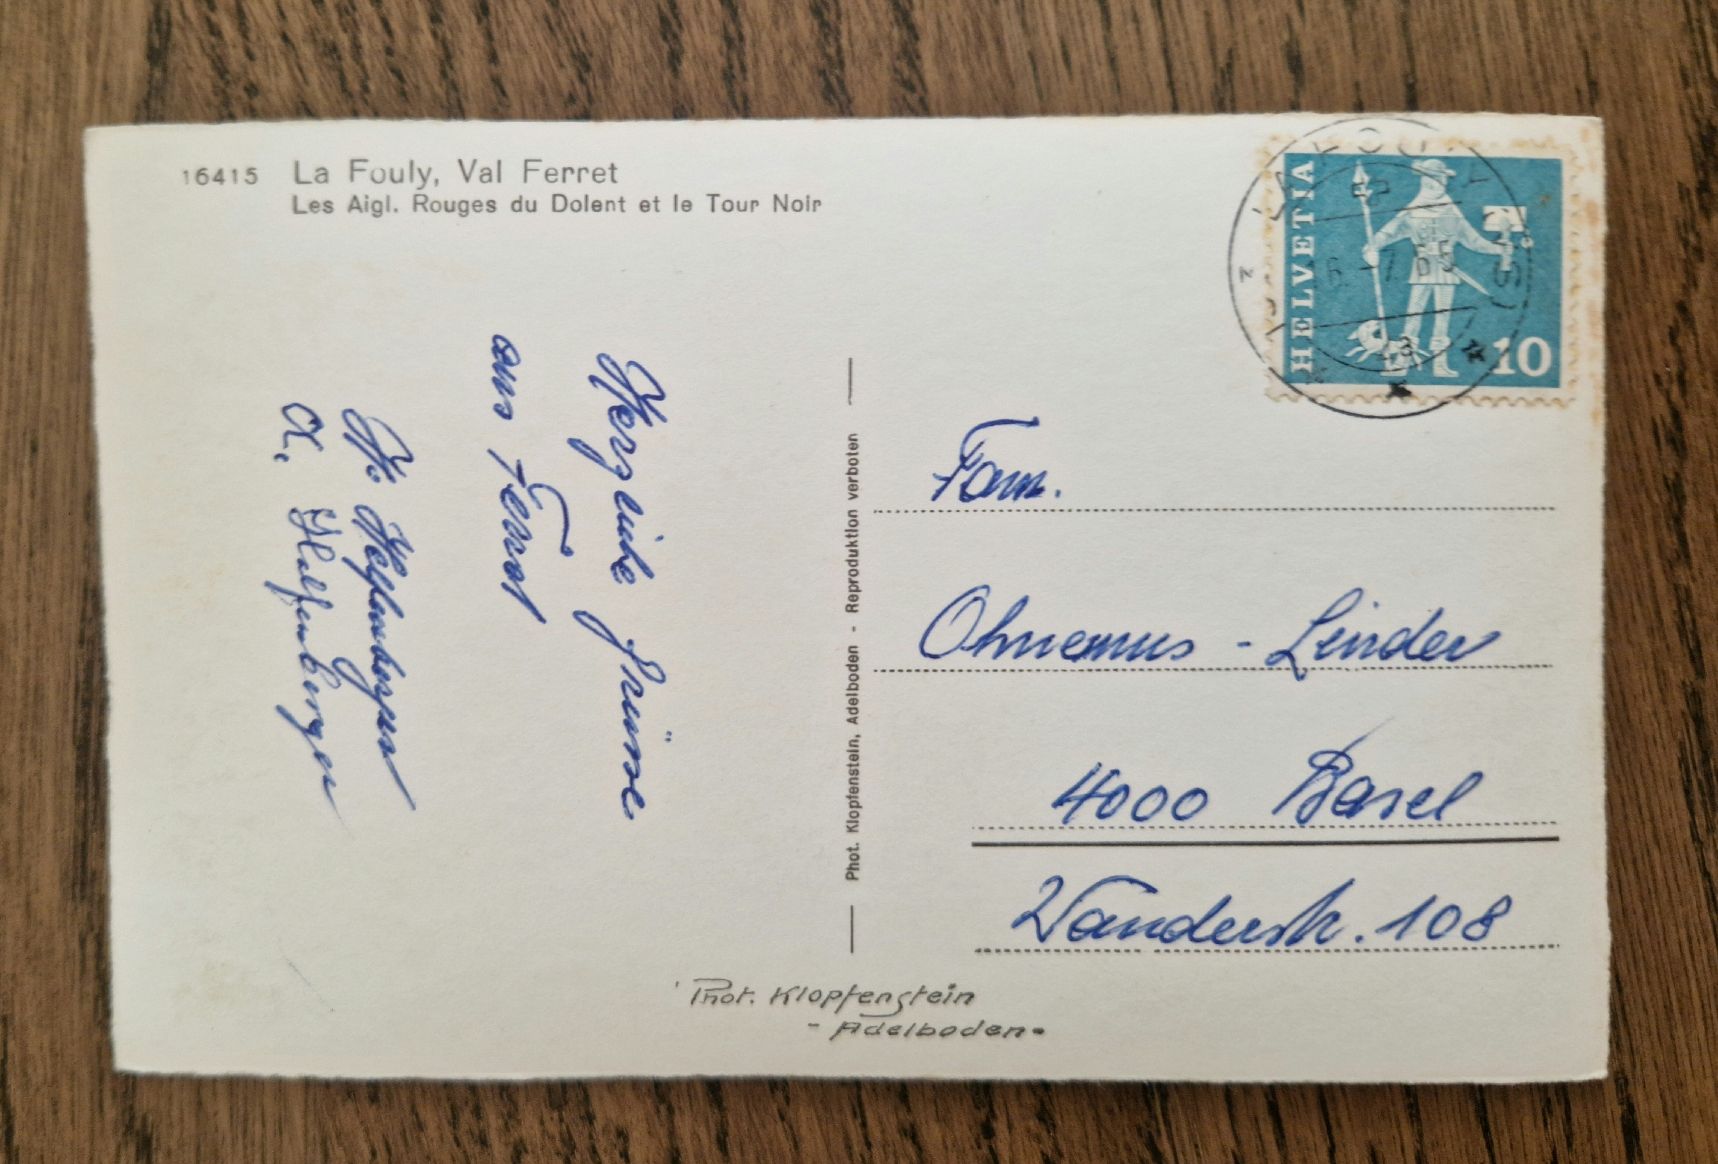 16415 La Fouly, Val Ferret
Les Aigl. Rouges du Dolent et le Tour Noir
Herzliche Grüsse
aus Ferret
H. Helfenberger
A. Helfenberger
Phot. Klopfenstein, Adelboden - Reproduktion verboten
HELVETIA
10
LA FOULY
16.-7.65
Fam.
Ohnemus - Linder
4000 Basel
Wanderstr. 108
Phot. Klopfenstein
- Adelboden -